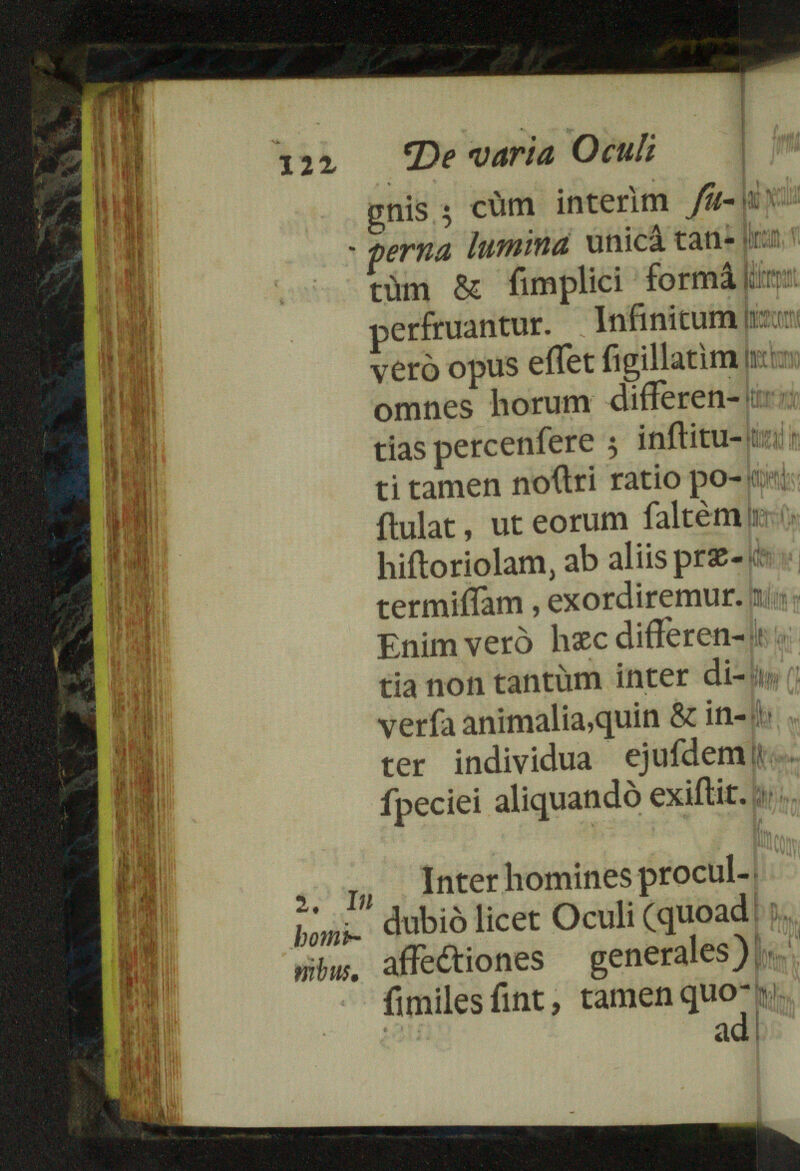 122 De varia Oculi
gnis ; cùm interìm ſu-
perna lumina unicâ tan-
tùm & ſimplici formâ
perfruantur. Infinitum
verò opus eſſet ſigillatìm
omnes horum differen-
tias percenſere ; inſtitu-
ti tamen noſtri ratio po-
ſtulat, ut eorum ſaltèm
hiſtoriolam, ab aliis præ-
termiſſam, exordiremur.
Enim verò hæc differen-
tia non tantùm inter di-
verſa animalia,quin & in-
ter individua ejuſdem
ſpeciei aliquandò exiſtit.
2. In
homi-
nibus.
Inter homines procul-
dubiò licet Oculi (quoad
affectiones generales)
ſimiles ſint, tamen quo-
ad